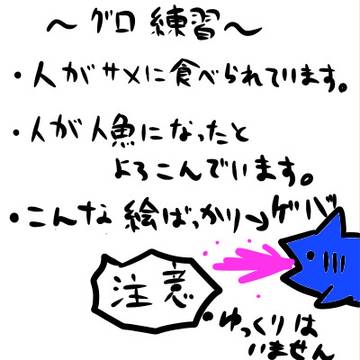 ～グロ練習～
・人がサメに食べられています。
・人が人魚になったと
よろこんでいます。
・こんな絵ばっかり→ゲバ
注意
・ゆっくりは
いません